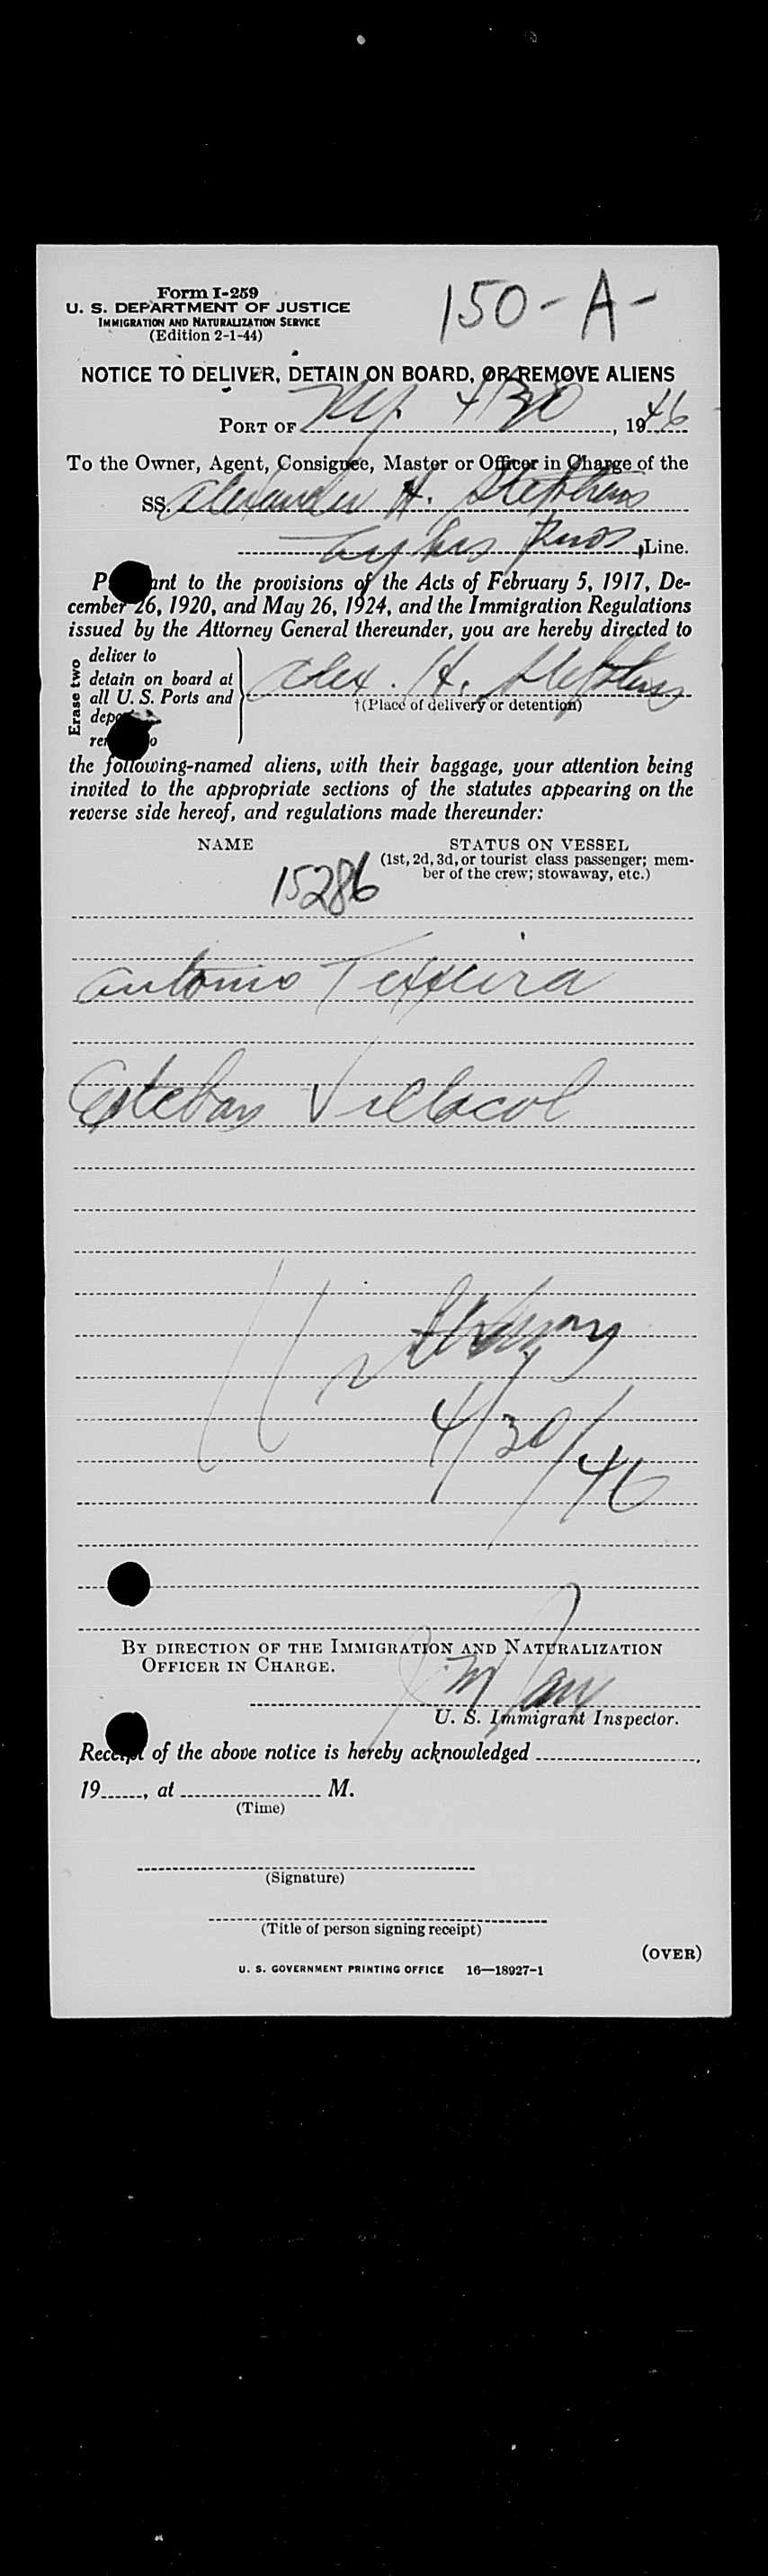 Form I-259
150-A-
U. S. DEPARTMENT OF JUSTICE
IMMIGRATION AND NATURALIZATION SERVICE
(Edition 2-1-44)
NOTICE TO DELIVER, DETAIN ON BOARD, OR REMOVE ALIENS
PORT OF NY. 4/30, 1946
To the Owner, Agent, Consignee, Master or Officer in Charge of the
SS. Alexander H. Stephens
Lykes Bros, Line.
P ant to the provisions of the Acts of February 5, 1917, De-
cember 26, 1920, and May 26, 1924, and the Immigration Regulations
issued by the Attorney General thereunder, you are hereby directed to
Erase two
deliver to
detain on board at
all U. S. Ports and
Alex. H. Stephens
†(Place of delivery or detention)
the following-named aliens, with their baggage, your attention being
invited to the appropriate sections of the statutes appearing on the
reverse side hereof, and regulations made thereunder:
NAME STATUS ON VESSEL
(1st, 2d, 3d, or tourist class passenger; mem-
ber of the crew; stowaway, etc.)
15286
Antonio Teixeira
Esteban Villacol
4/30/46
BY DIRECTION OF THE IMMIGRATION AND NATURALIZATION
OFFICER IN CHARGE.
U. S. Immigrant Inspector.
Receipt of the above notice is hereby acknowledged ,
19 , at M.
(Time)
(Signature)
(Title of person signing receipt)
(OVER)
U. S. GOVERNMENT PRINTING OFFICE 16—18927-1